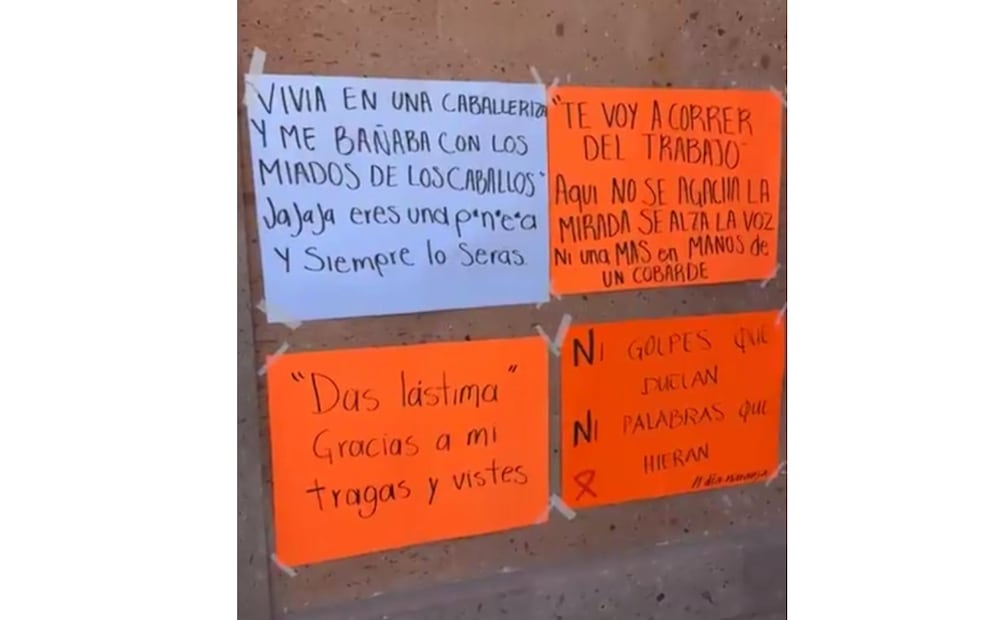 VIVIA EN UNA CABALLERIZA
Y ME BAÑABA CON LOS
MIADOS DE LOS CABALLOS"
JaJaJa eres una p*n*e*a
Y Siempre lo Seras
"TE VOY A CORRER
DEL TRABAJO"
Aqui NO SE AGACHA LA
MIRADA SE ALZA LA VOZ
Ni una MAS en MANOS de
UN COBARDE
"Das lástima"
Gracias a mi
tragas y vistes
NI GOLPES QUE
DUELAN
NI PALABRAS QUE
HIERAN
# día naranja